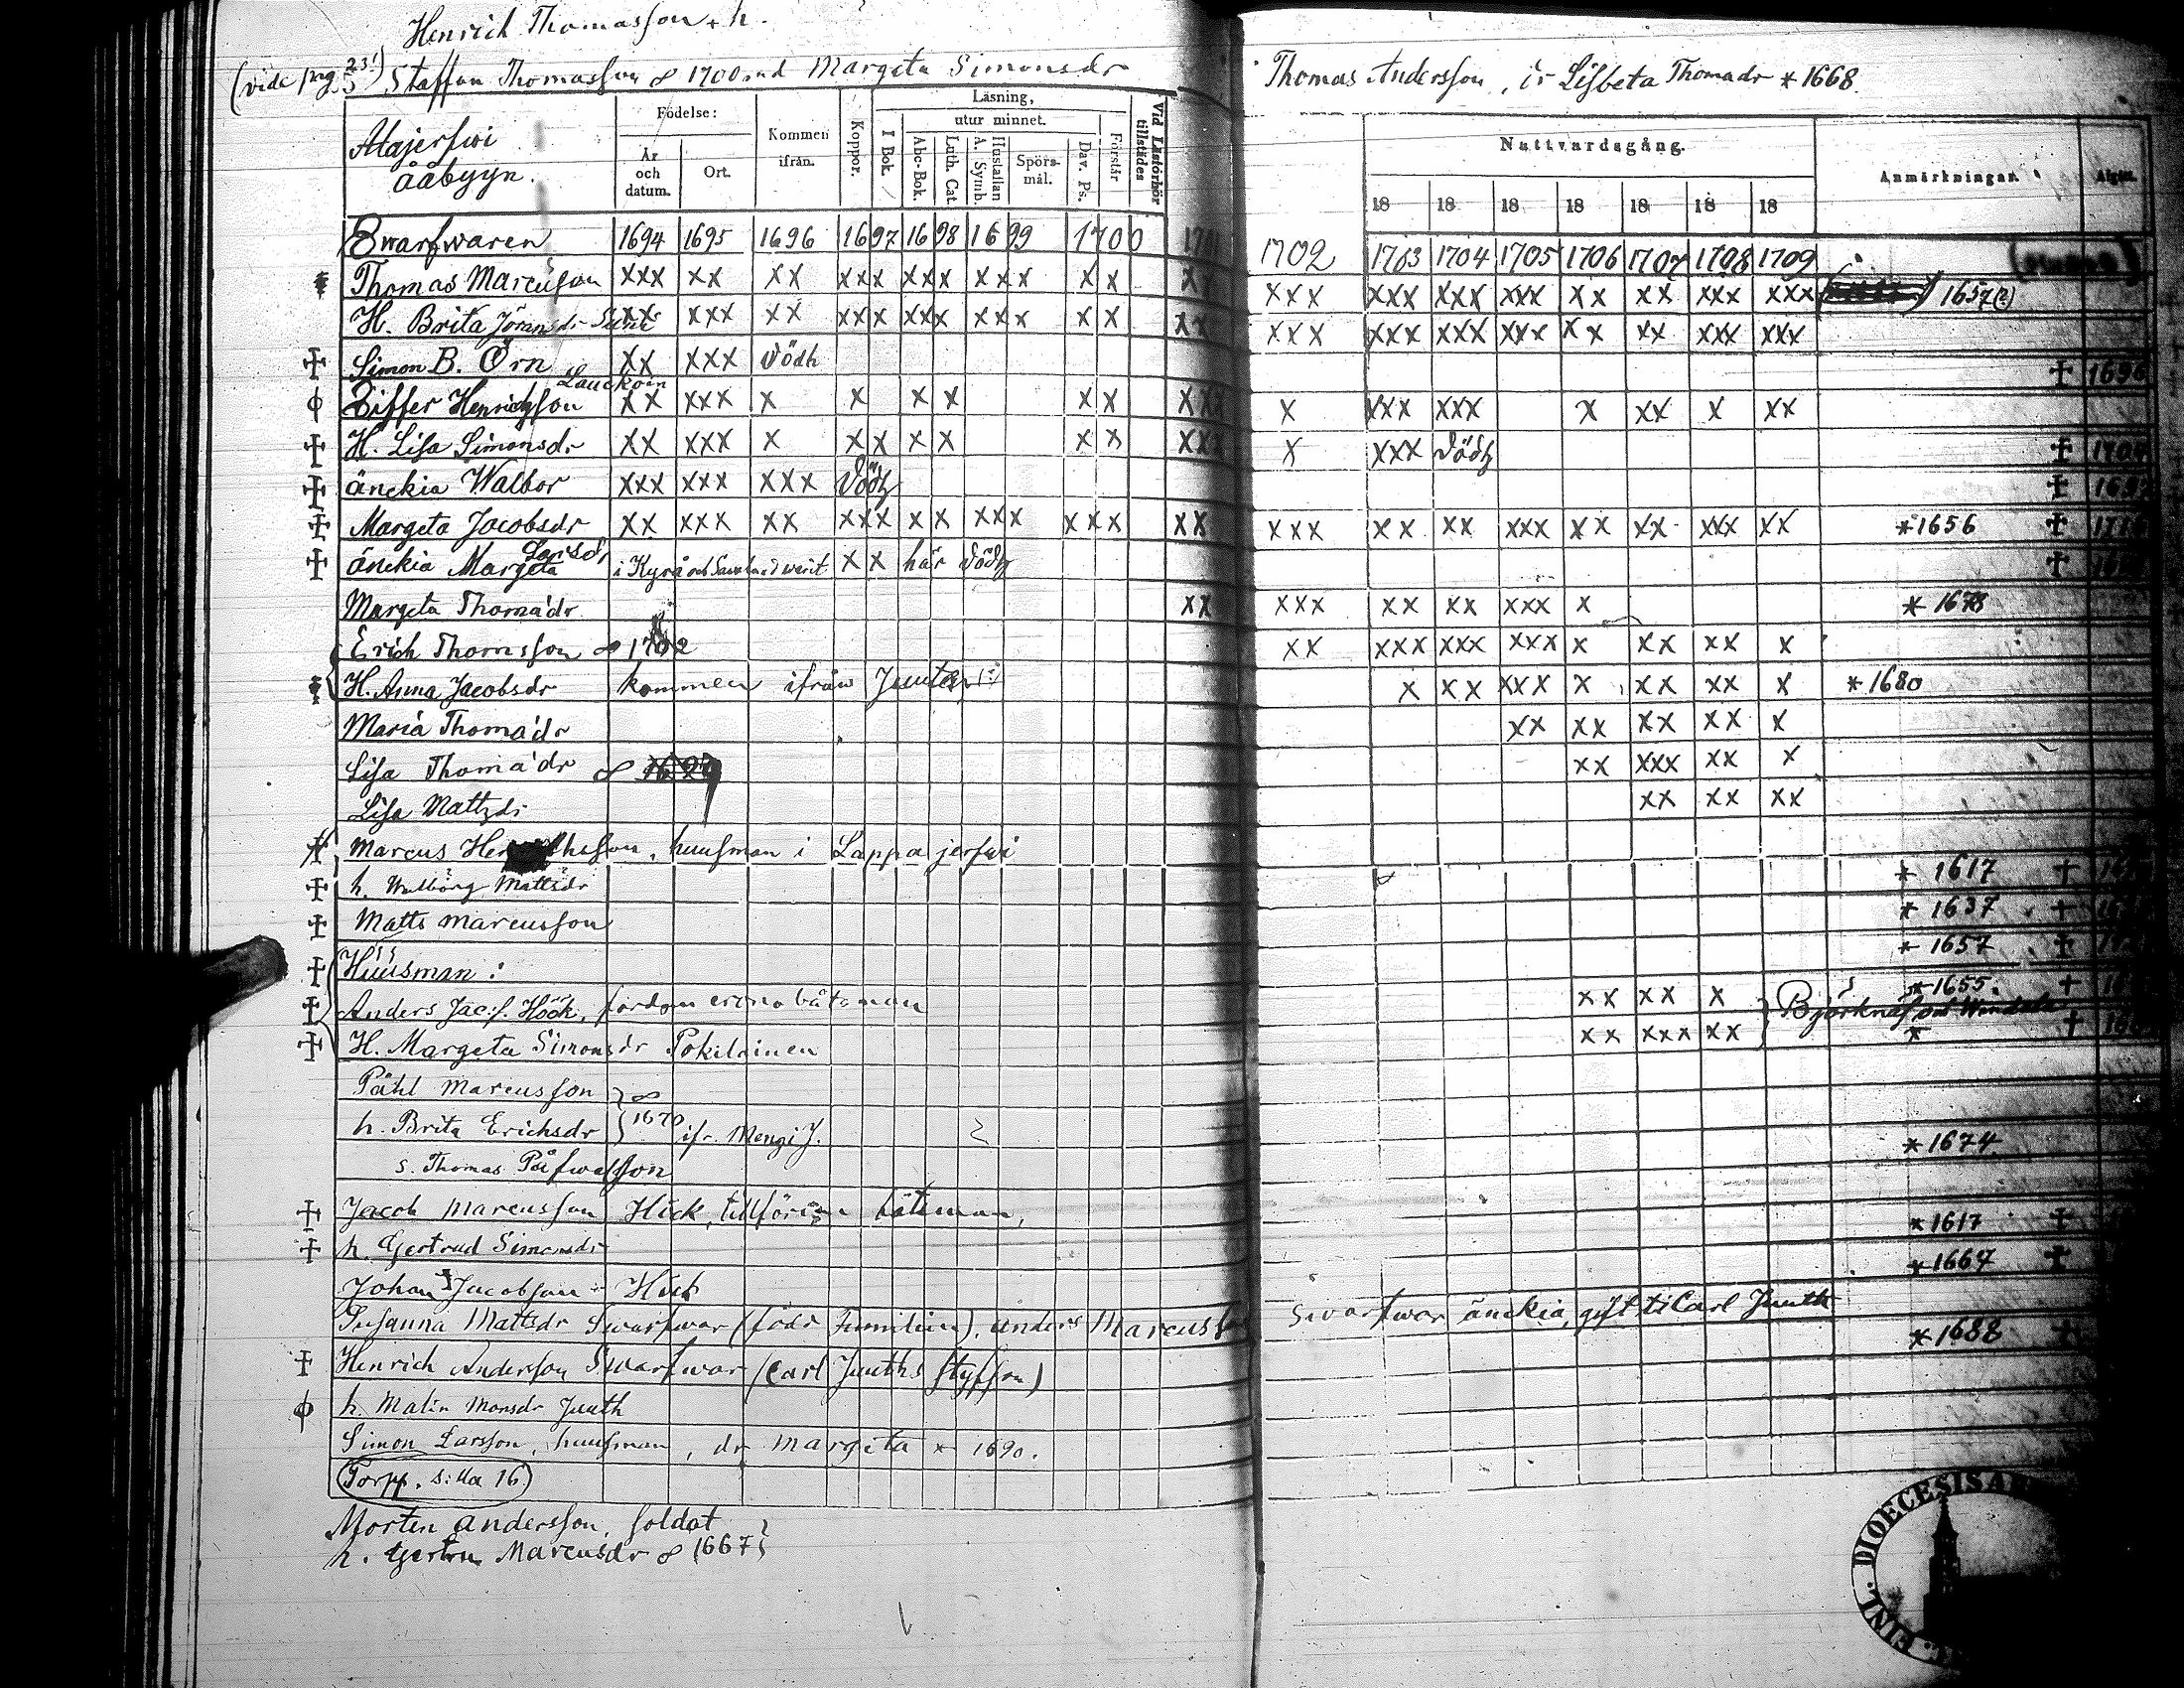 Henrich Thomasson + h.
(vide pag. 23!) Staffan Thomasson ∞ 1700 md Margeta Simonsdr
Thomas Andersson, Lisbeta Thomadr * 1668.
Alajerfwi ååbyyn.
Födelse: År och datum. Ort. Kommen ifrån. Koppor. Läsning, I Bok. utur minnet. Abc-Bok. Luth. Cat. Hustaflan A. Symb. Spörsmål. Dav. Ps. Förstår Vid Läsförhör tillstädes
Nattvardsgång. 18 18 18 18 18 18 18 Anmärkningar.
Swarfwaren 1694 1695 1696 1697 1698 1699 1700 1702 1703 1704 1705 1706 1707 1708 1709
Thomas Marcusson xxx xx xx xxx xxx xxx xx xxx xxx xxx xxx xx xx xxx xxx 1657(?)
H. Brita Jöransdr xx xxx xx xxx xxx xxx xx xx xxx xxx xxx xxx xx xx xxx xxx
† Simon B. Örn xx xxx dödh † 1696
Ziffer Henrichsson Lauckoin xx xxx x x x x x x xxx x xxx xxx x xx x xx
† H. Lisa Simonsdr xx xxx x xx x x x x xxx x xxx dödh †
† änckia Walbor xxx xxx xxx dödh †
† Margeta Jacobsdr xx xxx xx xxx xx xxx xxx xx xxx xx xx xxx xx xx xxx xx * 1656 †
† änckia Margeta Larsdr i Kyrå och warit xx här dödh †
Margeta Thomadr xx xxx xx xx xxx x * 1678
Erich Thomsson ∞ 1702 xx xxx xxx xxx x xx xx x
H. Anna Jacobsdr kommen ifrån x xx xxx x xx xx x * 1680
Maria Thomadr xx xx xx xx x
Lisa Thomadr ∞ xx xxx xx x
Lisa Mattsdr xx xx xx
Marcus huusman i Lappajerfwi
† h. Walborg Mattsdr * 1617 †
† Matts Marcusson * 1637 †
† Huusman: * 1657 †
† Anders Jac:s. Höök, fordom crono båtsman xx xx x Björknäs * 1655. †
† H. Margeta Simonsdr Pokilainen xx xxx xx * †
Påhl Marcusson ∞
h. Brita Erichsdr 1670 ifr. Mengi J. * 1674
s. Thomas Påfwalsson
† Jacob Marcusson Höck, tillförne båtsman, * 1617 †
† h. Gertrud Simonsdr * 1667 †
Johan Jacobsson Höck
Susanna Mattsdr Swarfwar (födr Familien), Anders Marcuss Swarfwar änckia, gift ti Carl Juuth
† Henrich Andersson Swarfwar (Carl Juuths styfson) * 1688
h. Malin Monsdr Juuth
Simon Larsson, huusman, dr Margeta * 1690.
(Torpp. s:lla 16)
Morten Andersson, soldat
h. Gertru Marcusdr ∞ 1667
FINL. DIOECESIS A